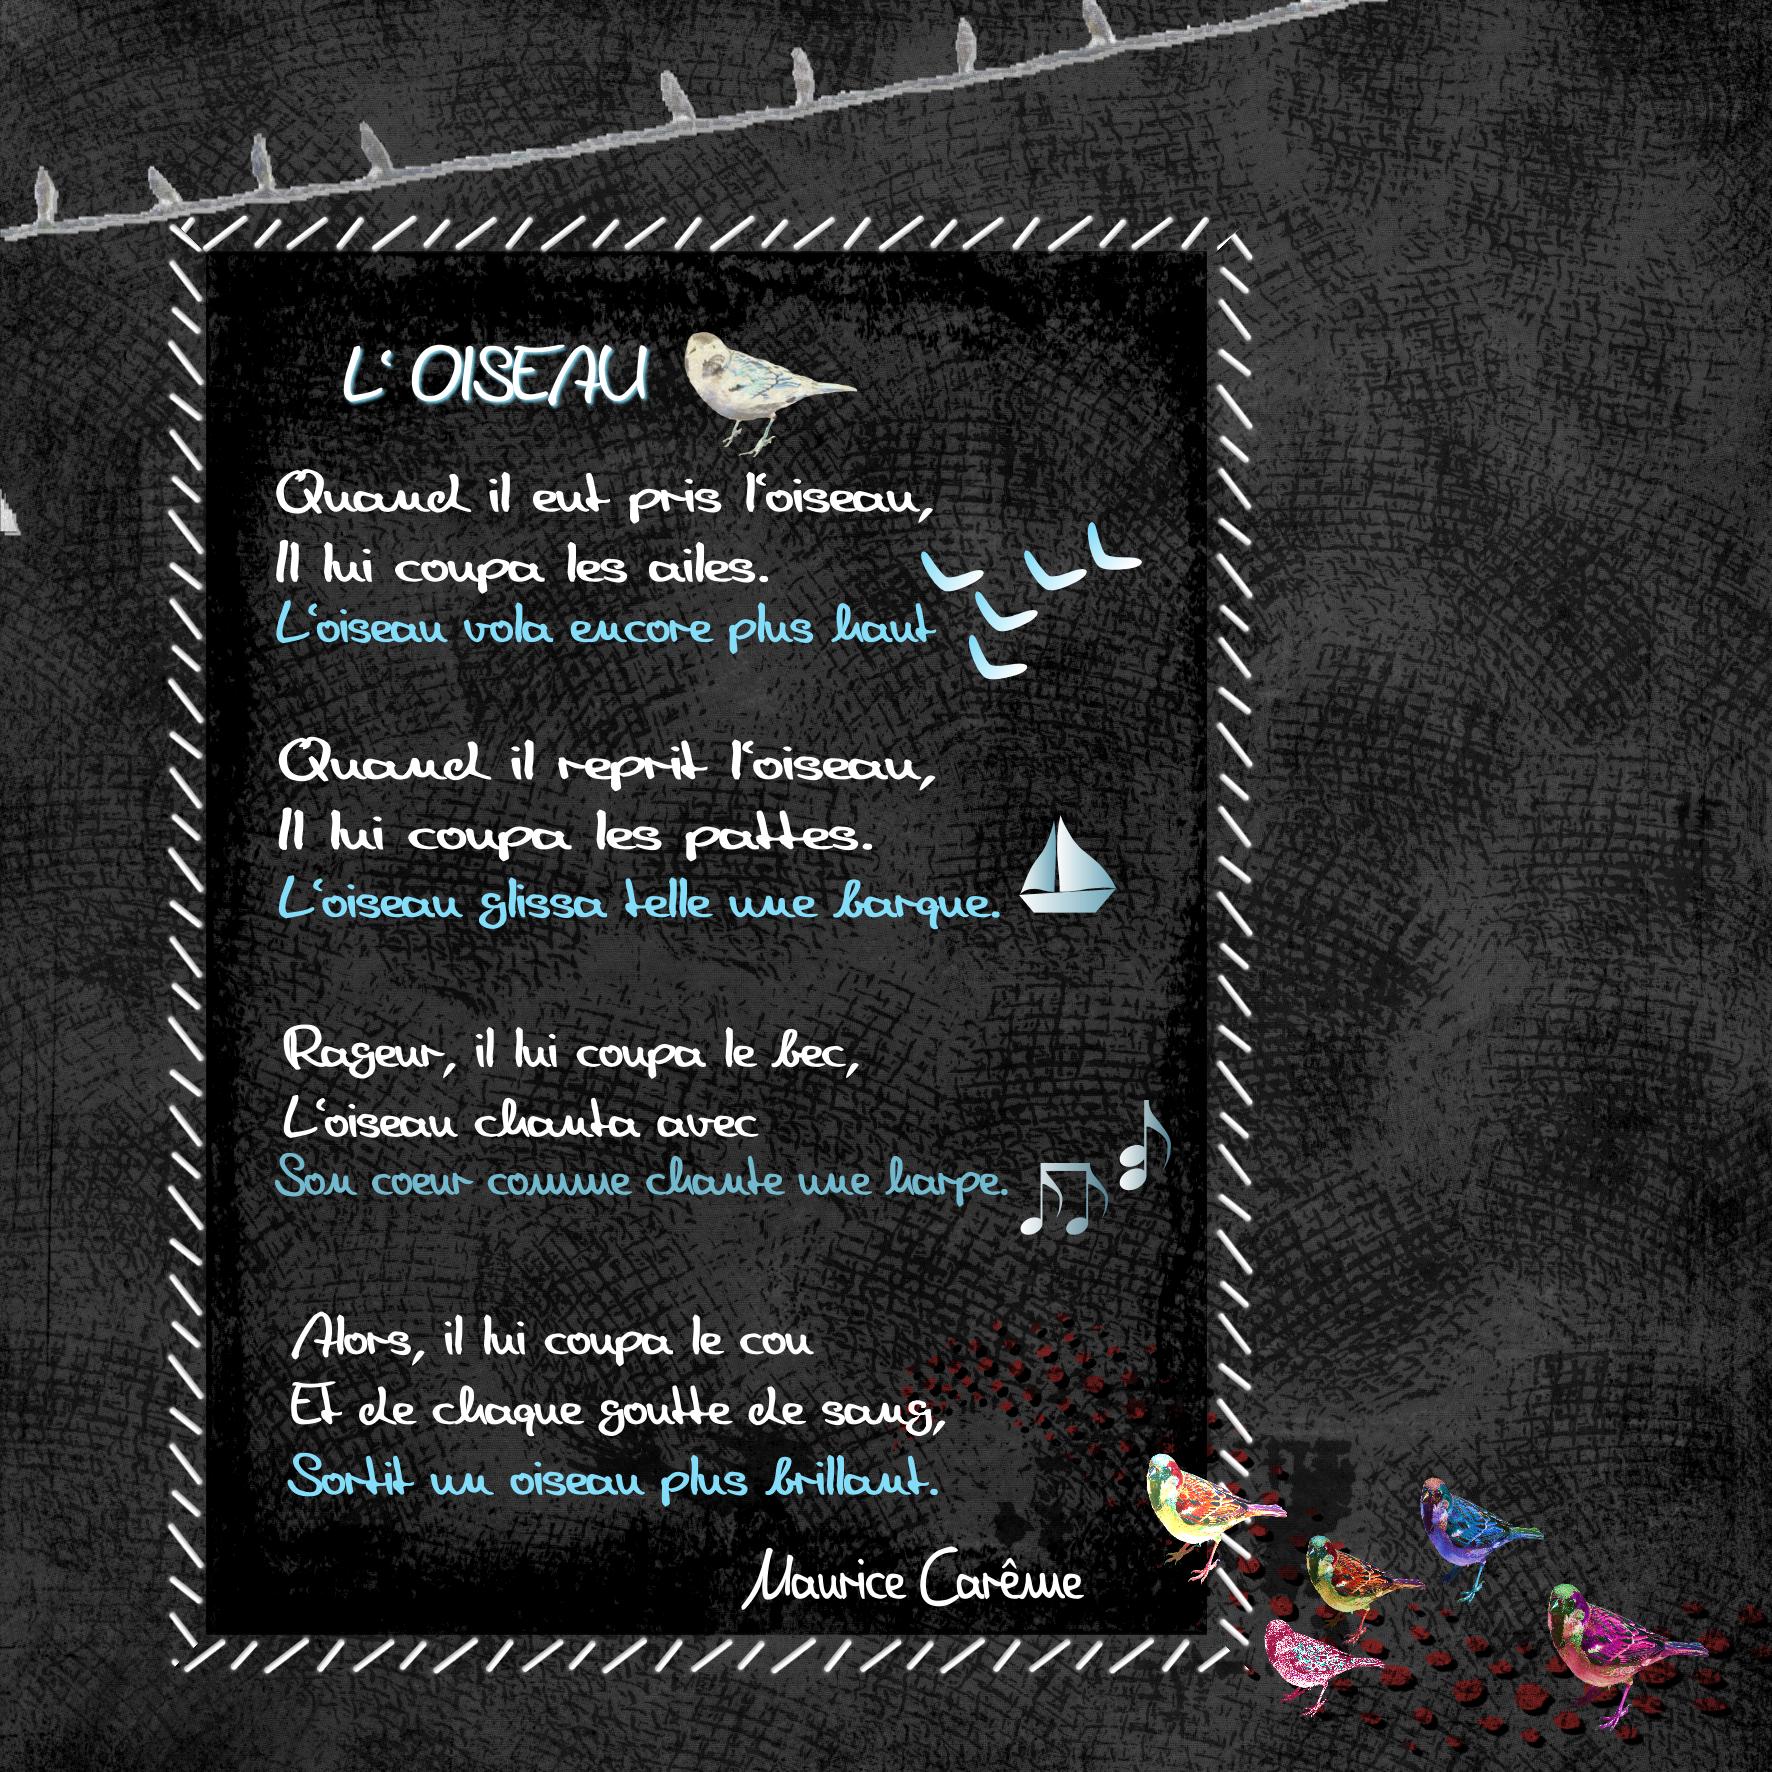 L'OISEAU
Quand il eut pris l'oiseau,
Il lui coupa les ailes.
L'oiseau vola encore plus haut
Quand il reprit l'oiseau,
Il lui coupa les pattes.
L'oiseau glissa telle une barque.
Rageur, il lui coupa le bec,
L'oiseau chanta avec
Son coeur comme chante une harpe.
Alors, il lui coupa le cou
Et de chaque goutte de sang,
Sortit un oiseau plus brillant.
Maurice Carême